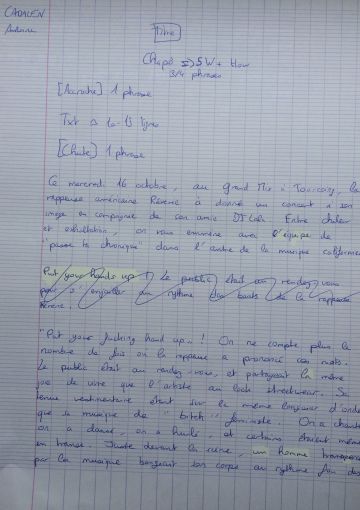 CADALEN
Antoine
Titre
Chapô => 5W + How
3/4 phrases
[Accroche] 1 phrase
Txt => 10-15 lignes
[Chute] 1 phrase
Ce mercredi 16 octobre, au Grand Mix à Tourcoing, la
rappeuse américaine Rêverie a donné un concert à son
image en compagnie de son amie DJ Lala. Entre chaleur
et exhultation, on vous emmène avec l'équipe de
"passe ta chronique" dans l'antre de la musique californie
Put your hands up ! Le public était au rendez-vous
pour s' au rythme des beats de la rappeuse
Rêverie.
"Put your fucking hand up" ! On ne compte plus le
nombre de fois où la rappeuse a prononcé ces mots.
Le public était au rendez-vous, et partageait la même
joie de vivre que l'artiste au look streetwear. Sa
tenue vestimentaire était sur la même longueur d'onde
que sa musique de "bitch" féministe. On a chanté
on a dansé, on a hurlé, et certains étaient même
en transe. Juste devant la scène, un homme transporté
par la musique bougeait son corps au rythme